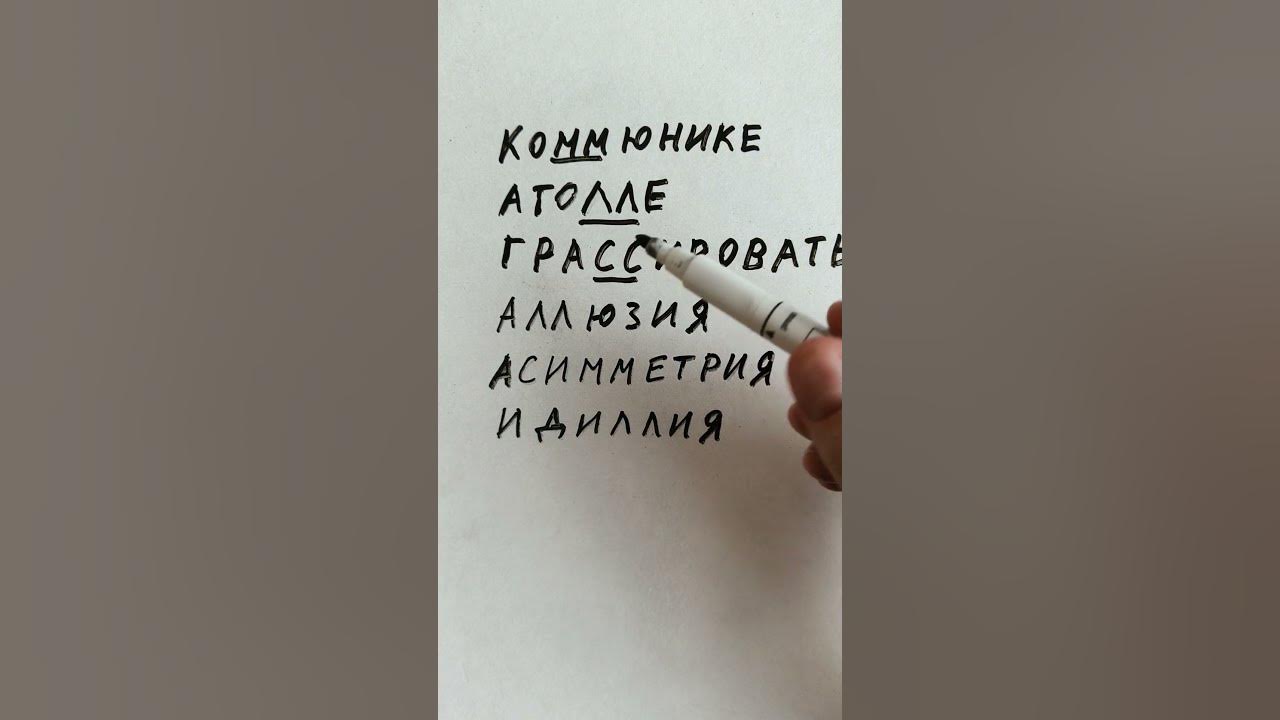 КОММЮНИКЕ
АТОЛЛЕ
ГРАССИРОВАТЬ
АЛЛЮЗИЯ
АСИММЕТРИЯ
ИДИЛЛИЯ